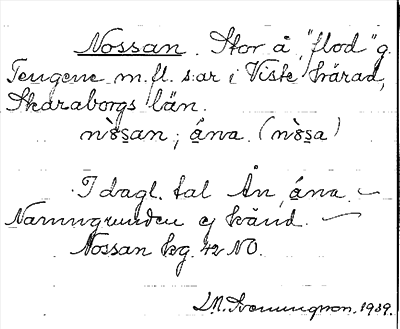 Nossan. Stor å, "flod" g.
Tengene m.fl. s:ar i Viste härad,
Skaraborgs län.
nòs̱an; á̱na. (nòs̱a)
I dagl. tal Ån, á̱na.
Namngrunden ej känd.
Nossan kg. 42 NO.
1939.